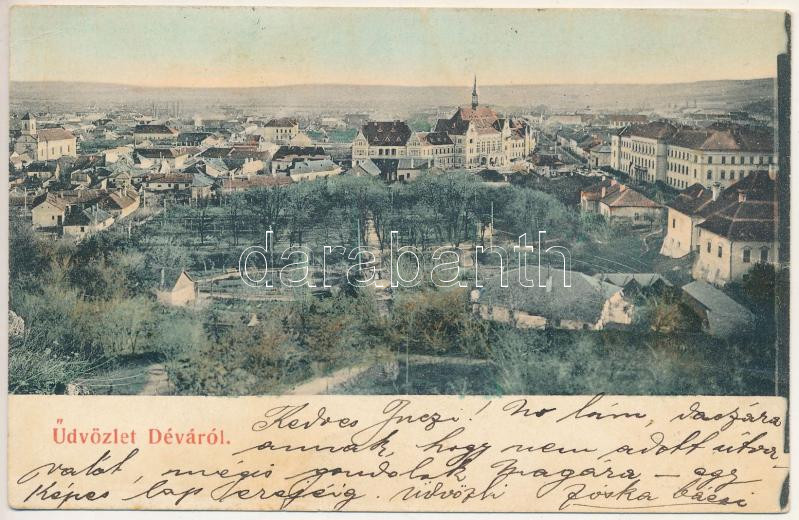 darabanth
Üdvözlet Déváról.
Kedves Inczi! No lám, daczára
annak, hogy nem adott útra
valót, mégis gondolok magára – egy
képes lap erejéig. üdvözli Jóska bácsi